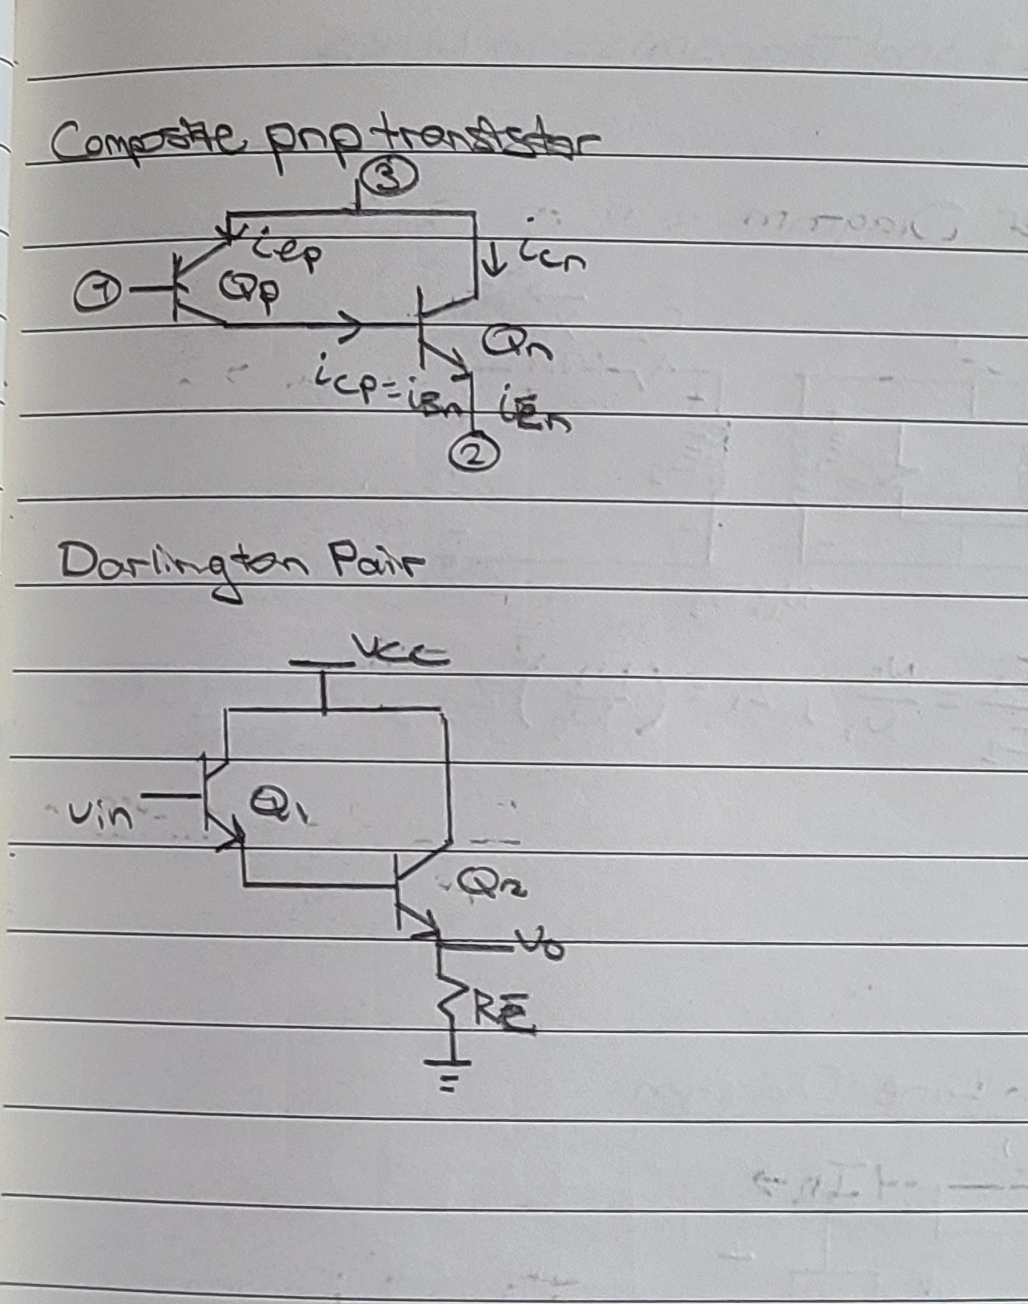 Composite pnp transistor
③
iep
icn
①
Qp
Qn
icp=iBn
iEn
②
Darlington Pair
VCC
vin
Q1
Q2
Vo
RE